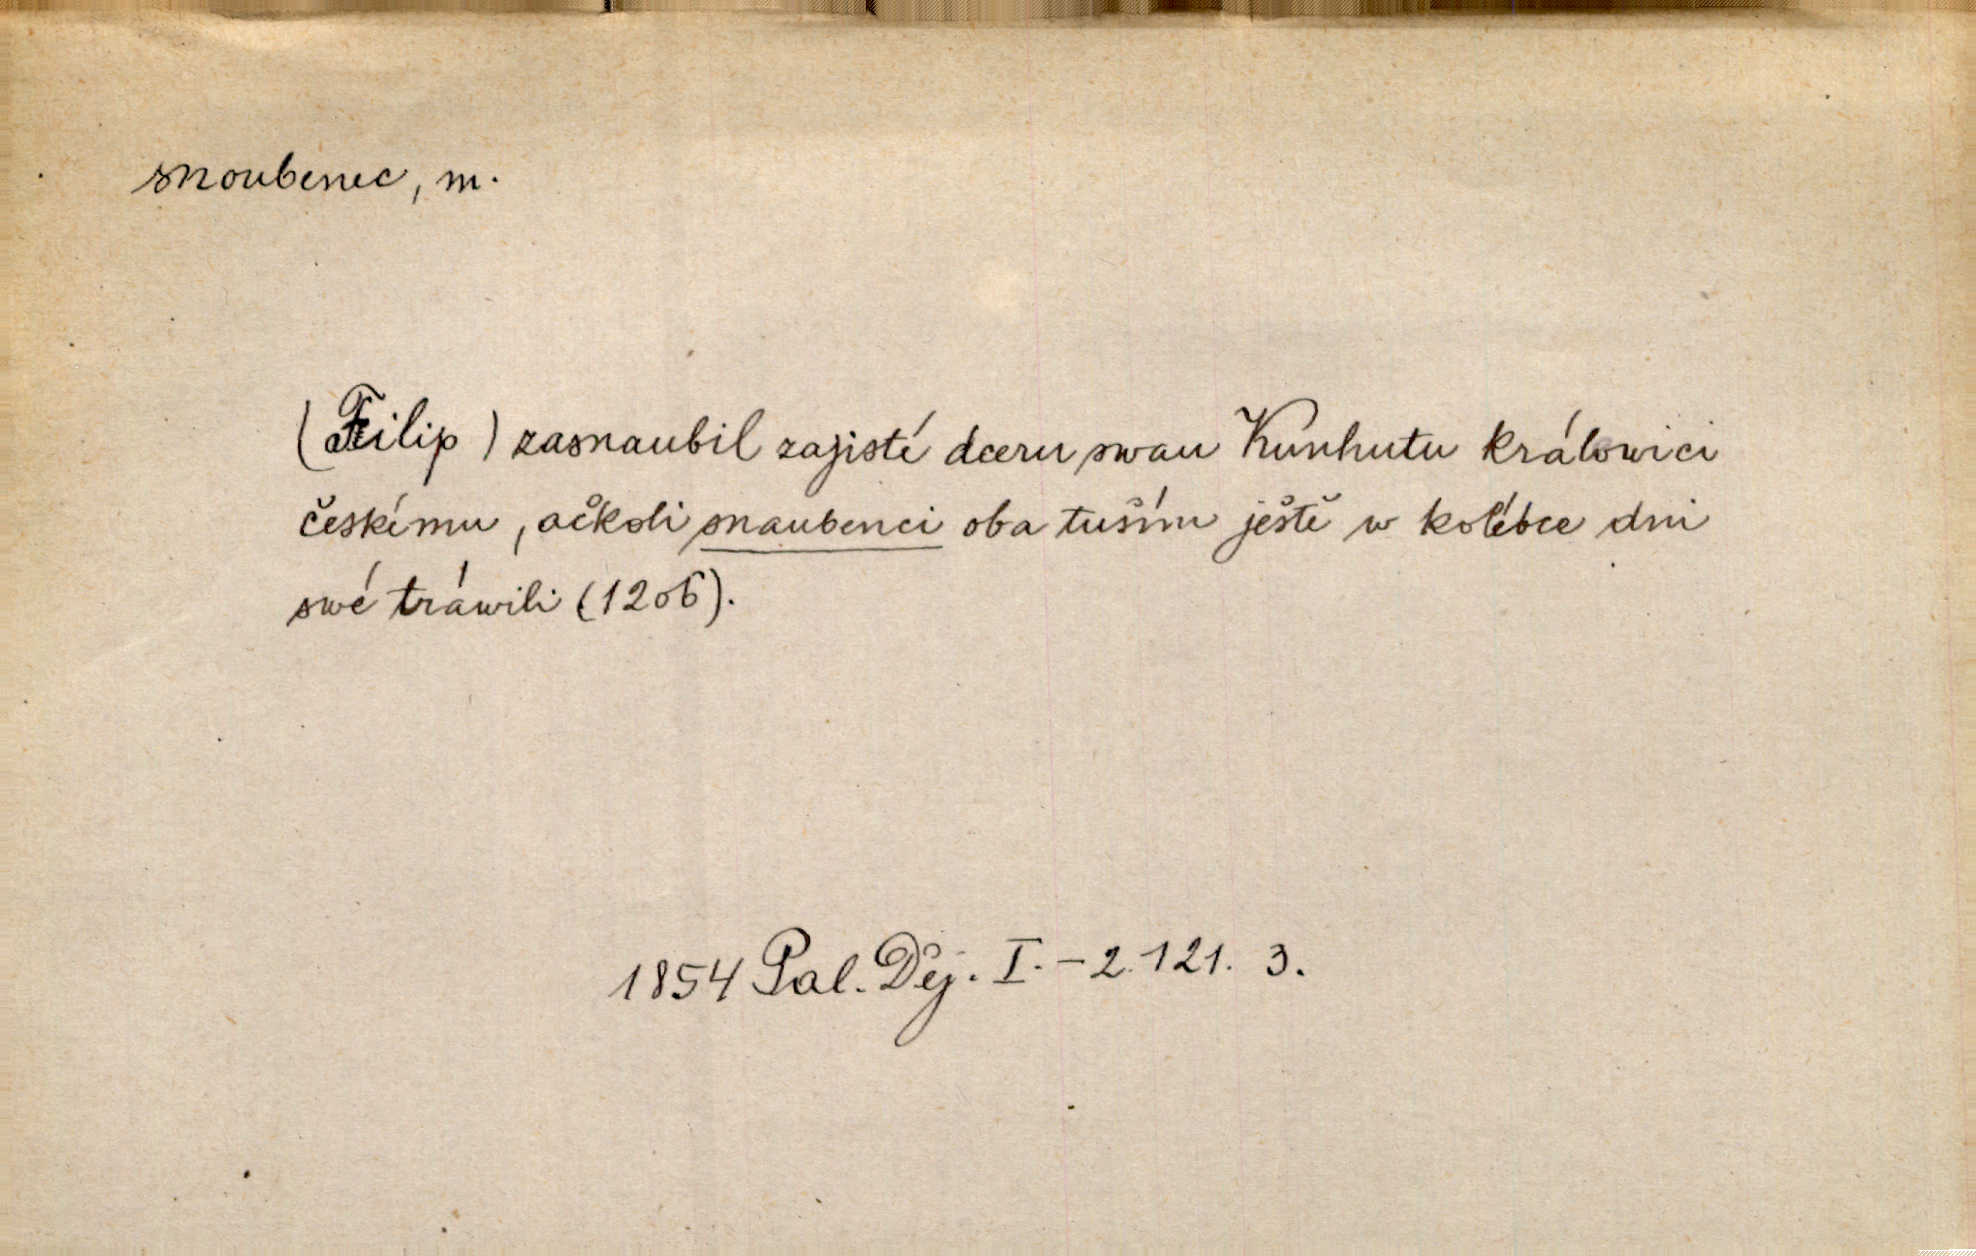 snoubenec, m.
(Filip) zasnaubil zajisté dceru swau Kunhutu králowici
českému, ačkoli snaubenci oba tuším ještě w kolébce dni
swé tráwili (1206).
1854 Pal. Děj. I. - 2. 121. 3.